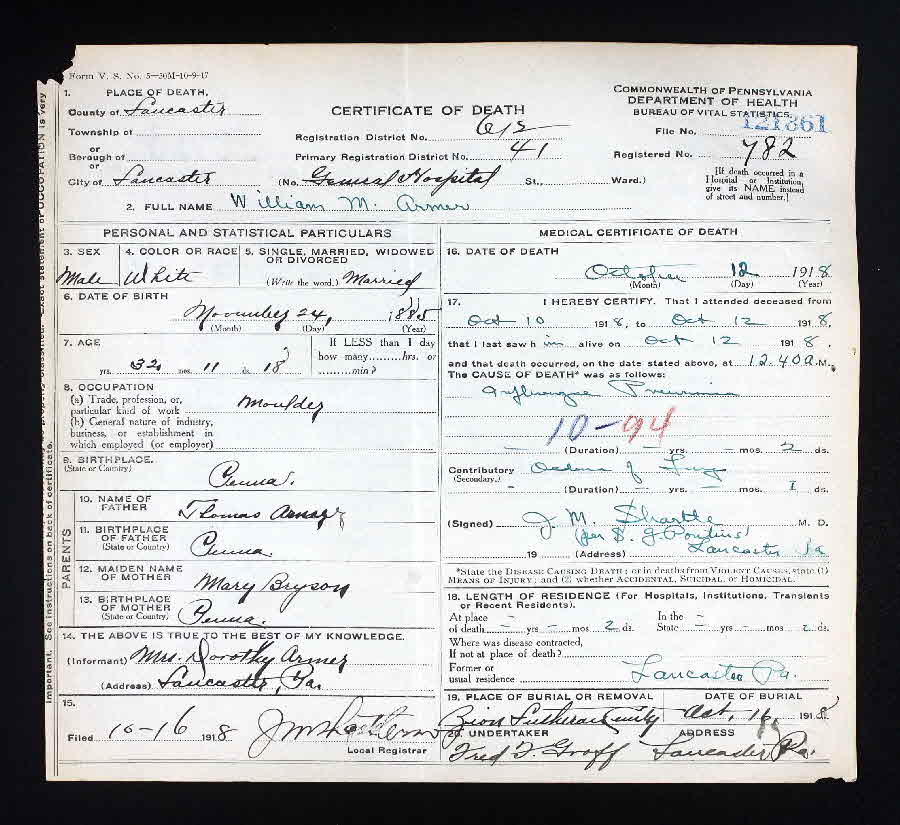 Form V. S. No. 5—50M-10-9-17
1. PLACE OF DEATH.
County of Lancaster
Township of
or
Borough of
or
City of Lancaster
CERTIFICATE OF DEATH
Registration District No. 612
Primary Registration District No. 41
(No. General Hospital St., Ward.)
COMMONWEALTH OF PENNSYLVANIA
DEPARTMENT OF HEALTH
BUREAU OF VITAL STATISTICS.
File No. 121361
Registered No. 782
[If death occurred in a
Hospital or Institution,
give its NAME instead
of street and number.]
2. FULL NAME William M. Armer
PERSONAL AND STATISTICAL PARTICULARS
3. SEX
Male
4. COLOR OR RACE
White
5. SINGLE, MARRIED, WIDOWED
OR DIVORCED
(Write the word.) Married
6. DATE OF BIRTH
November 24, 1885
(Month) (Day) (Year)
7. AGE
32 yrs. 11 mos. 18
If LESS than 1 day
how many hrs. or
min?
8. OCCUPATION
(a) Trade, profession, or,
particular kind of work Moulder
(b) General nature of industry,
business, or establishment in
which employed (or employer)
9. BIRTHPLACE.
(State or Country)
Penna.
PARENTS
10. NAME OF
FATHER
Thomas
11. BIRTHPLACE
OF FATHER
(State or Country)
Penna.
12. MAIDEN NAME
OF MOTHER
Mary Bryson
13. BIRTHPLACE
OF MOTHER
(State or Country)
Penna.
14. THE ABOVE IS TRUE TO THE BEST OF MY KNOWLEDGE.
(Informant) Mrs. Dorothy Armer
(Address) Lancaster, Pa.
15.
Filed 10-16 1918
Local Registrar
MEDICAL CERTIFICATE OF DEATH
16. DATE OF DEATH
October 12 1918
(Month) (Day) (Year)
17. I HEREBY CERTIFY. That I attended deceased from
Oct 10 1918, to Oct 12 1918,
that I last saw him alive on Oct 12 1918.
and that death occurred, on the date stated above, at 12.40 A.M.
The CAUSE OF DEATH* was as follows:
Influenza Pneumonia
10-94
(Duration) – yrs. – mos. 2 ds.
Contributory Oedema of Lung
(Secondary.)
(Duration) – yrs. – mos. 1 ds.
(Signed) J. M. Shartle M. D.
(per S. G.
19 (Address) Lancaster Pa
*State the DISEASE CAUSING DEATH; or in deaths from VIOLENT CAUSES, state (1)
MEANS OF INJURY; and (2) whether ACCIDENTAL, SUICIDAL, or HOMICIDAL.
18. LENGTH OF RESIDENCE (For Hospitals, Institutions, Transients
or Recent Residents).
At place
of death – yrs – mos. 2 ds.
In the
State – yrs – mos. 2 ds.
Where was disease contracted,
If not at place of death?
Former or
usual residence Lancaster Pa.
19. PLACE OF BURIAL OR REMOVAL
Zion Lutheran
DATE OF BURIAL
Oct, 16, 1918
20. UNDERTAKER
Fred F. Groff
ADDRESS
Lancaster Pa.
important. See instructions on back of certificate. Exact statement of OCCUPATION is very